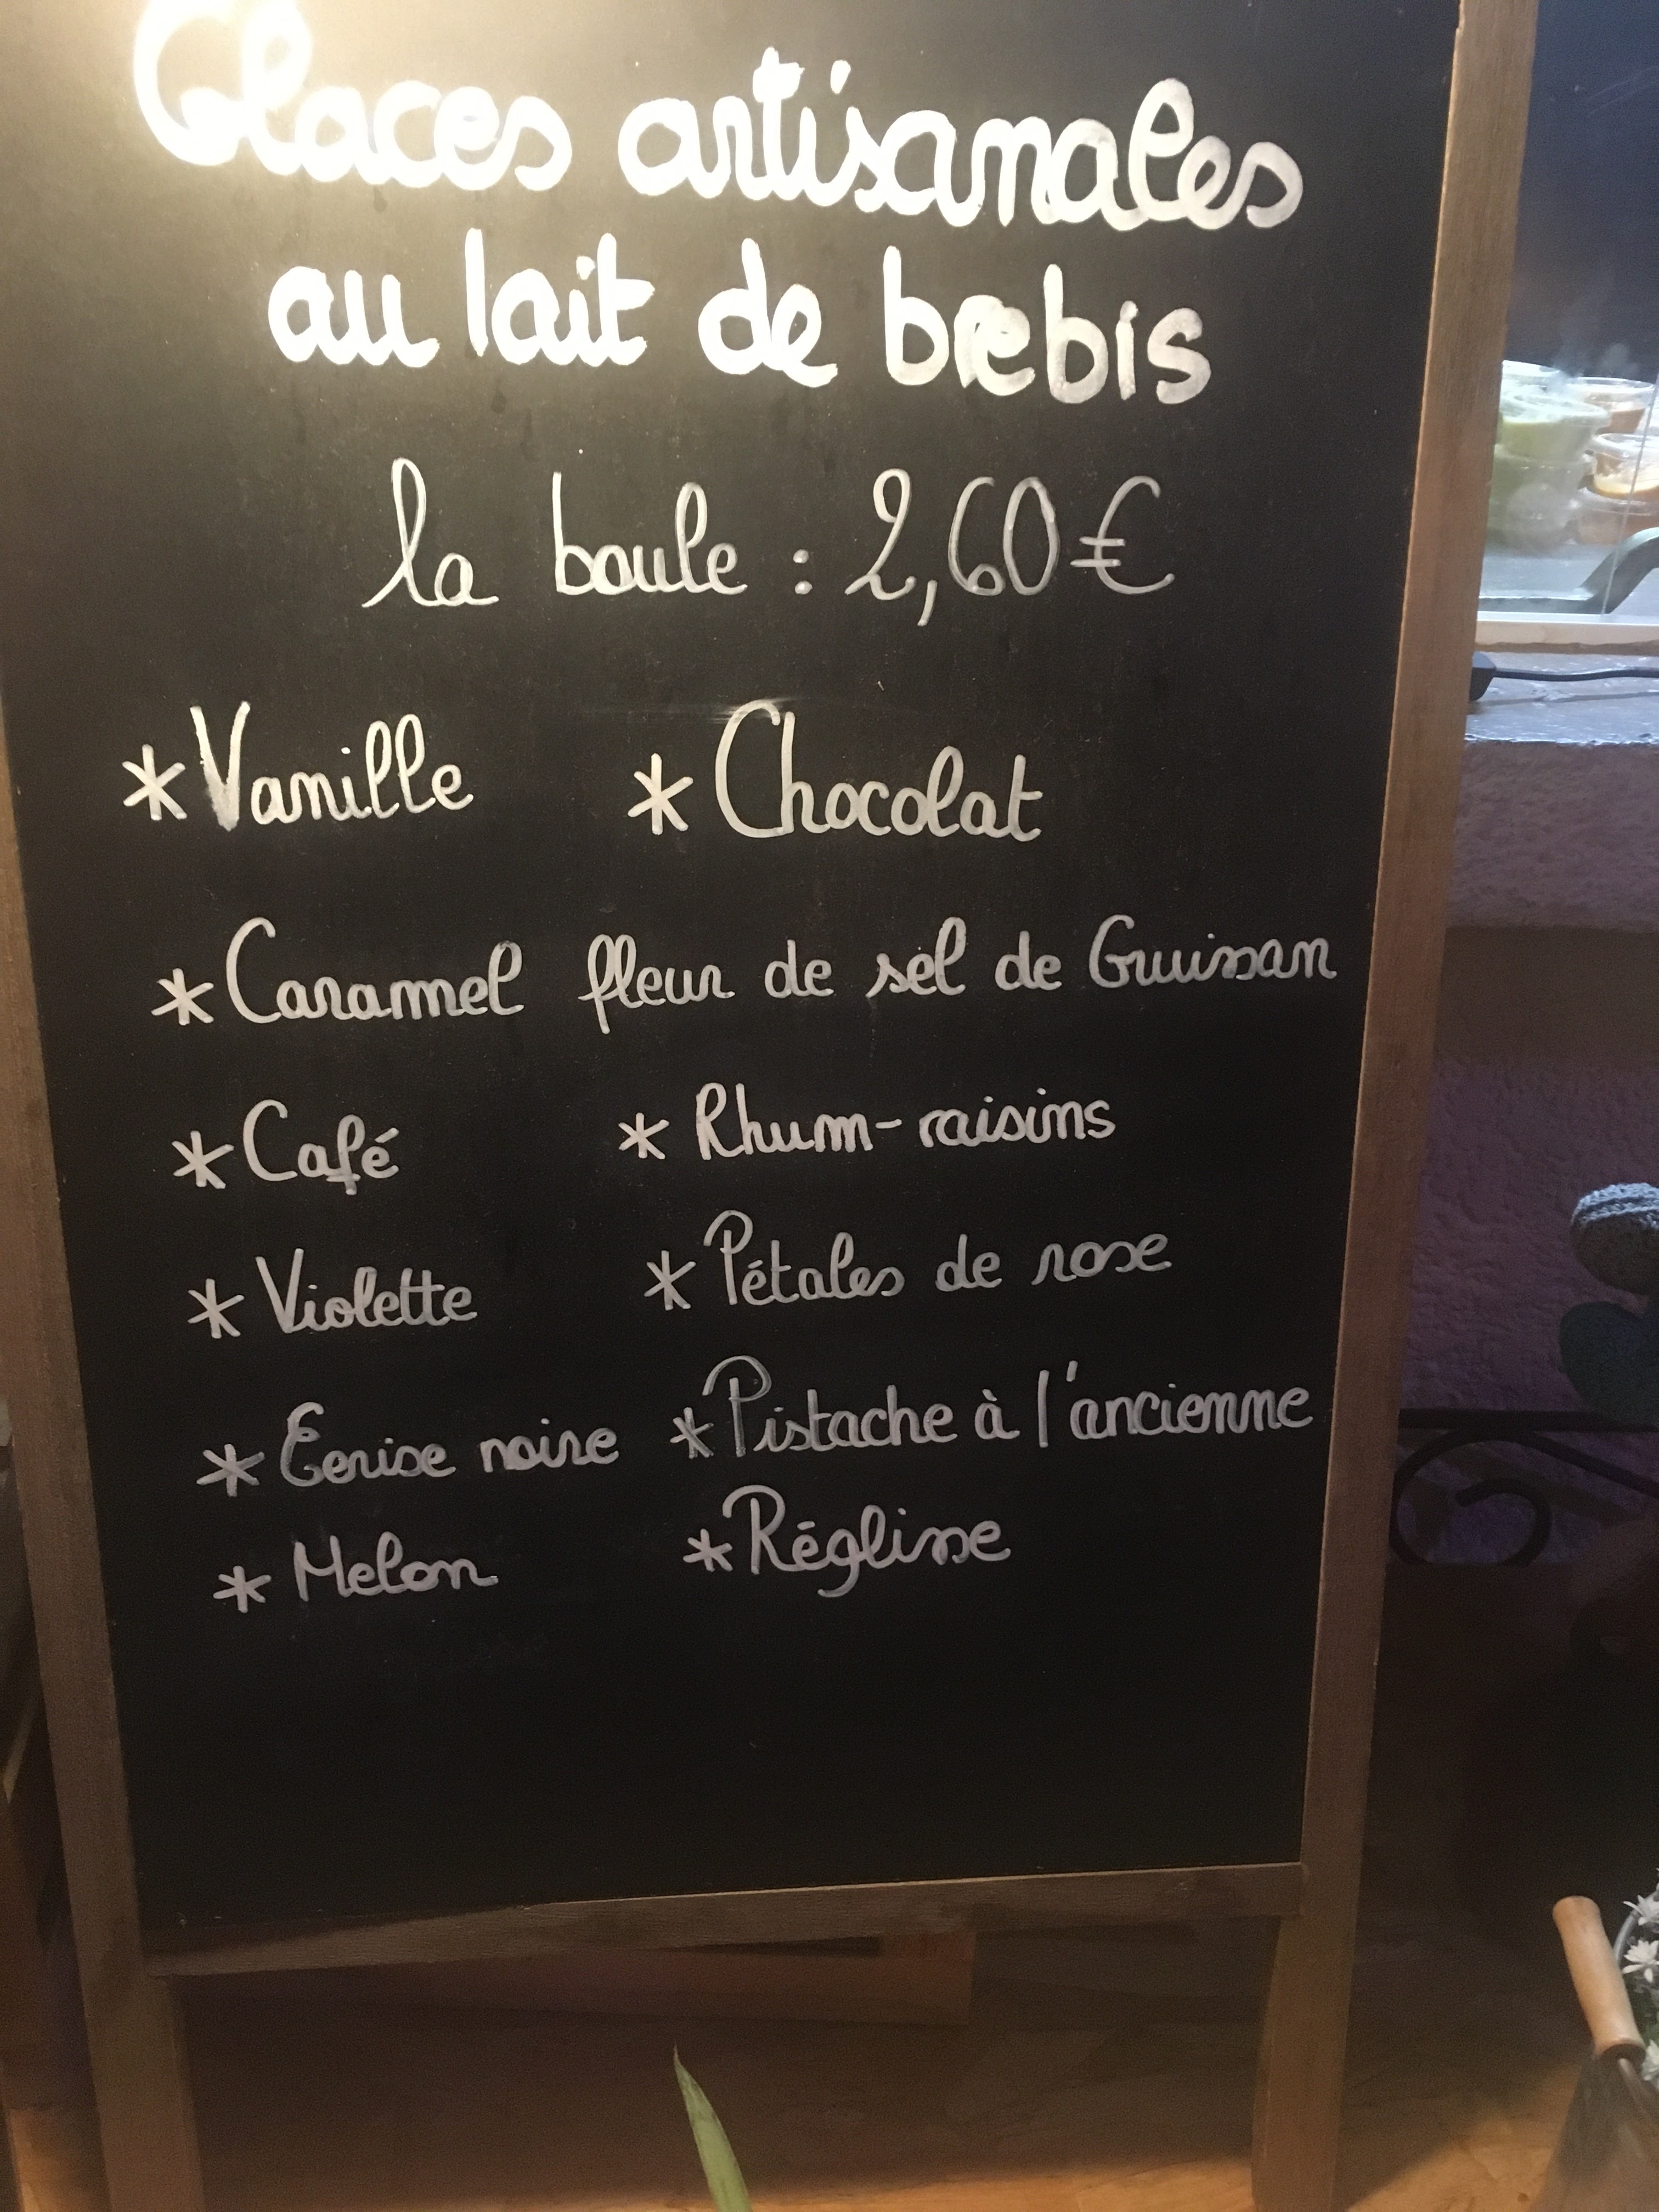 Glaces artisanales
au lait de brebis
la boule : 2,60€
*Vanille * Chocolat
*Caramel fleur de sel de Gruissan
*Café * Rhum-raisins
*Violette * Pétales de rose
* Cerise noire *Pistache à l'ancienne
* Melon *Réglisse